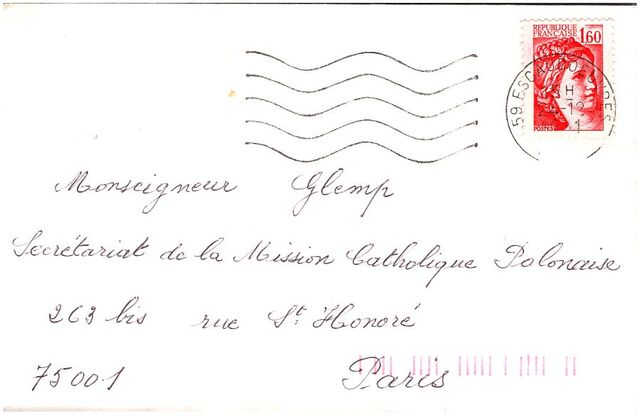 REPUBLIQUE
FRANÇAISE 1,60
POSTES
59 ESCAUDOEUVRES
H
-12
1
Monseigneur Glemp
Secrétariat de la Mission Catholique Polonaise
263 bis rue St Honoré
75001 Paris